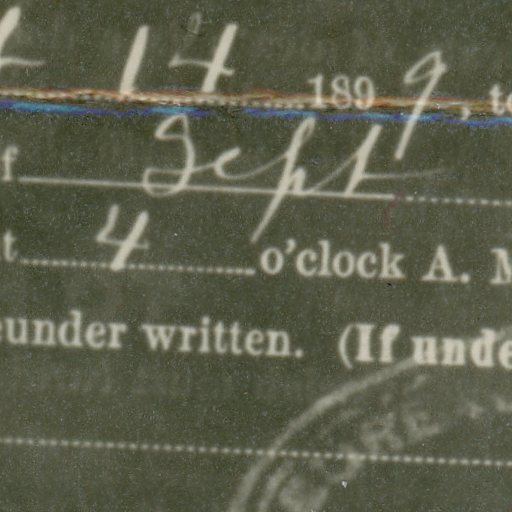 14 1899, to
Sept
4 o'clock A. M
under written. (If unde